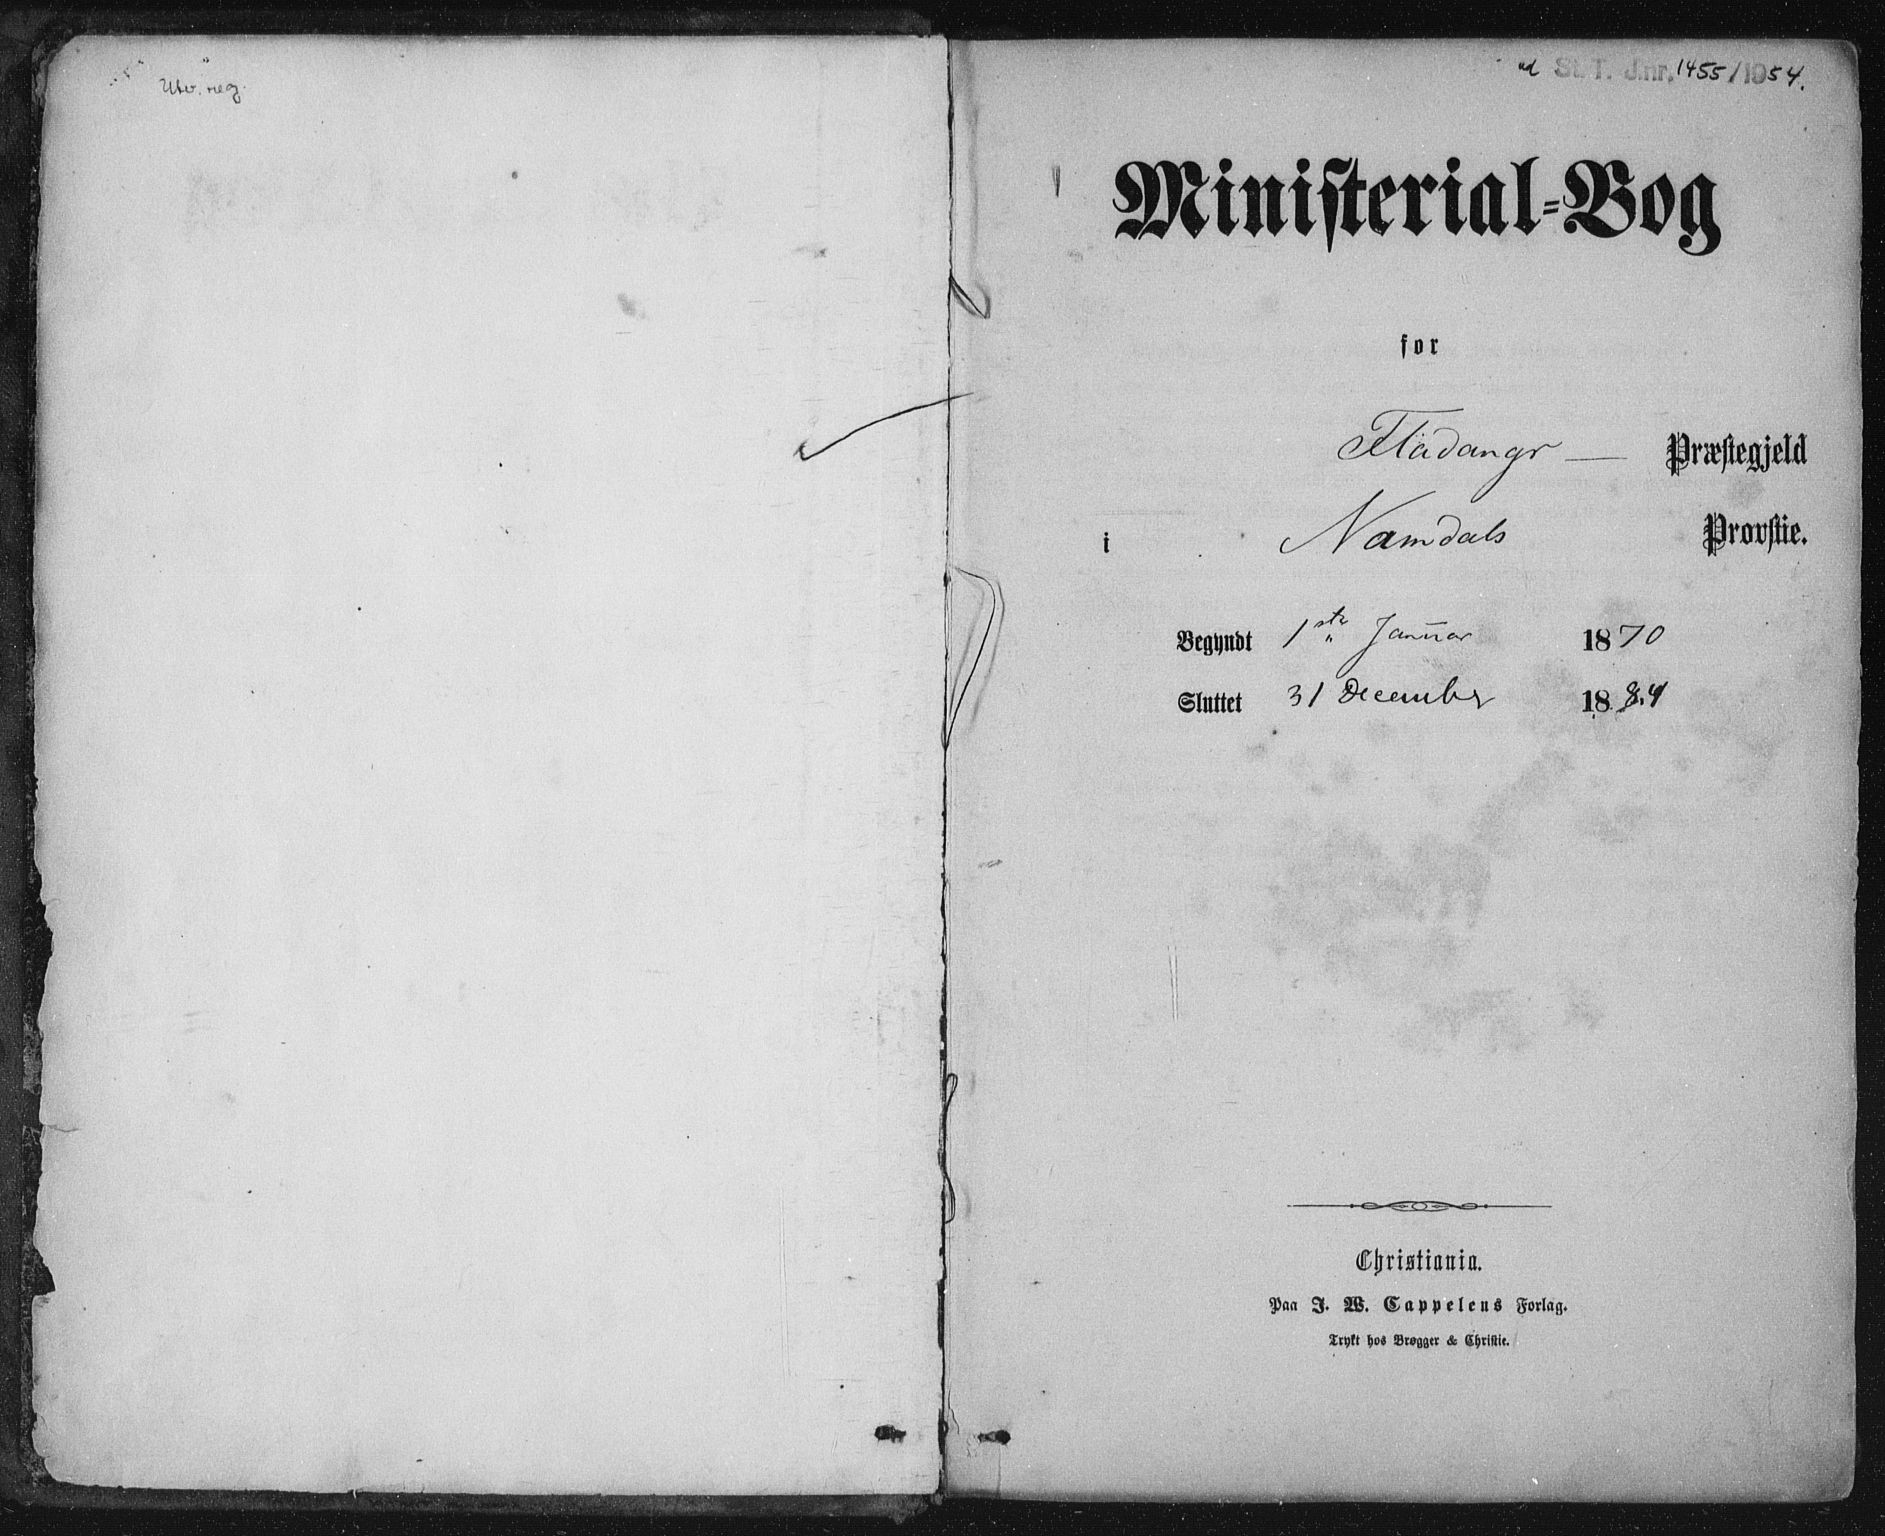 Utv. reg.
St. T. J.nr. 1455/1954.
Ministerial-Bog
for
Fladangr — Præstegjeld
i Namdals Provstie.
Begyndt 1ste Januar 1870
Sluttet 31 December 1884
Christiania.
Paa J. W. Cappelens Forlag.
Trykt hos Brøgger & Christie.